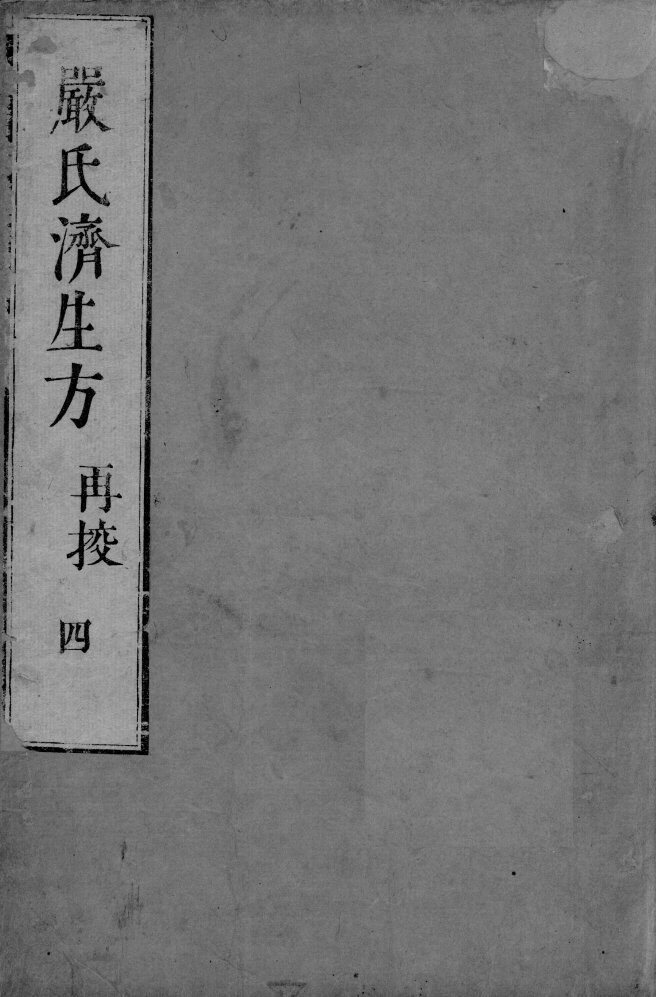 嚴氏濟生方 再挍 四